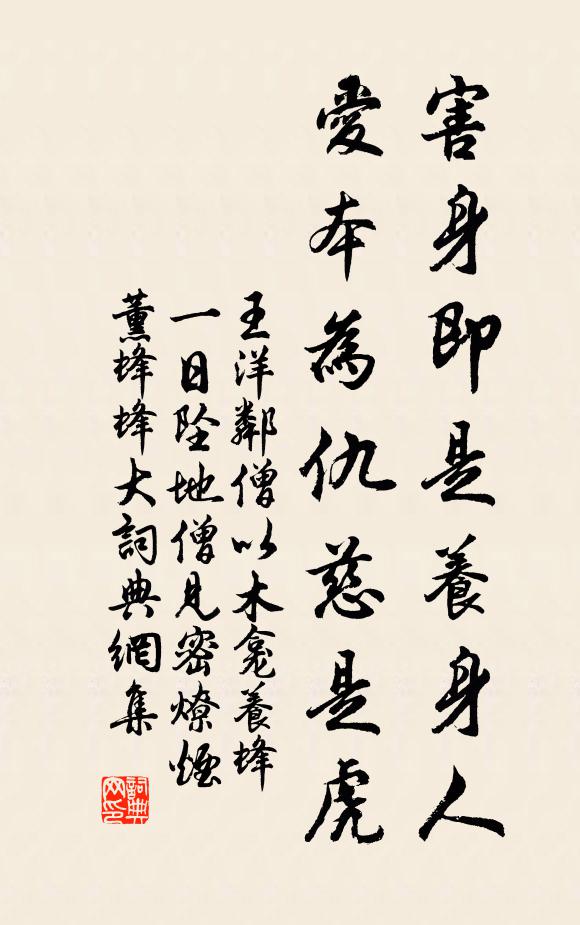 害身即是養身人
愛本為仇慈是虎
王洋鄰僧以木龕養蜂
一日墜地僧見密燎煙
薰蜂蜂大詞典網集
詞典
网印